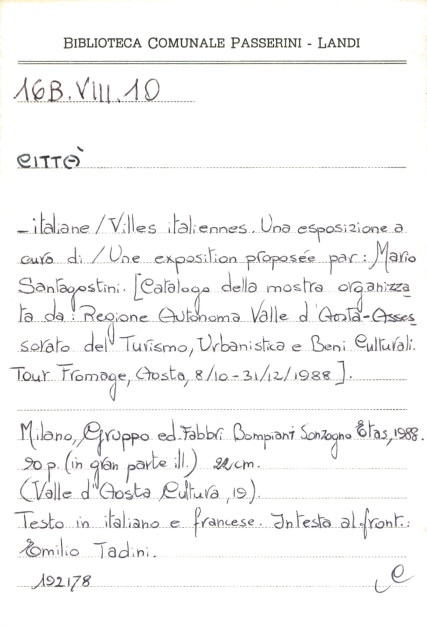 BIBLIOTECA COMUNALE PASSERINI - LANDI
16B.VIII.10
CITTÀ
- italiane / Villes italiennes. Una esposizione a
cura di / Une exposition proposée par: Mario
Santagostini. [Catalogo della mostra organizza
ta da: Regione Autonoma Valle d'Aosta-Asses
sorato del Turismo, Urbanistica e Beni Culturali.
Tour Fromage, Aosta, 8/10-31/12/1988].
Milano, Gruppo ed. Fabbri Bompiani Sonzogno Etas, 1988.
90 p. (in gran parte ill.) 22 cm.
(Valle d'Aosta Cultura, 19).
Testo in italiano e francese. In testa al front.:
Emilio Tadini.
192178